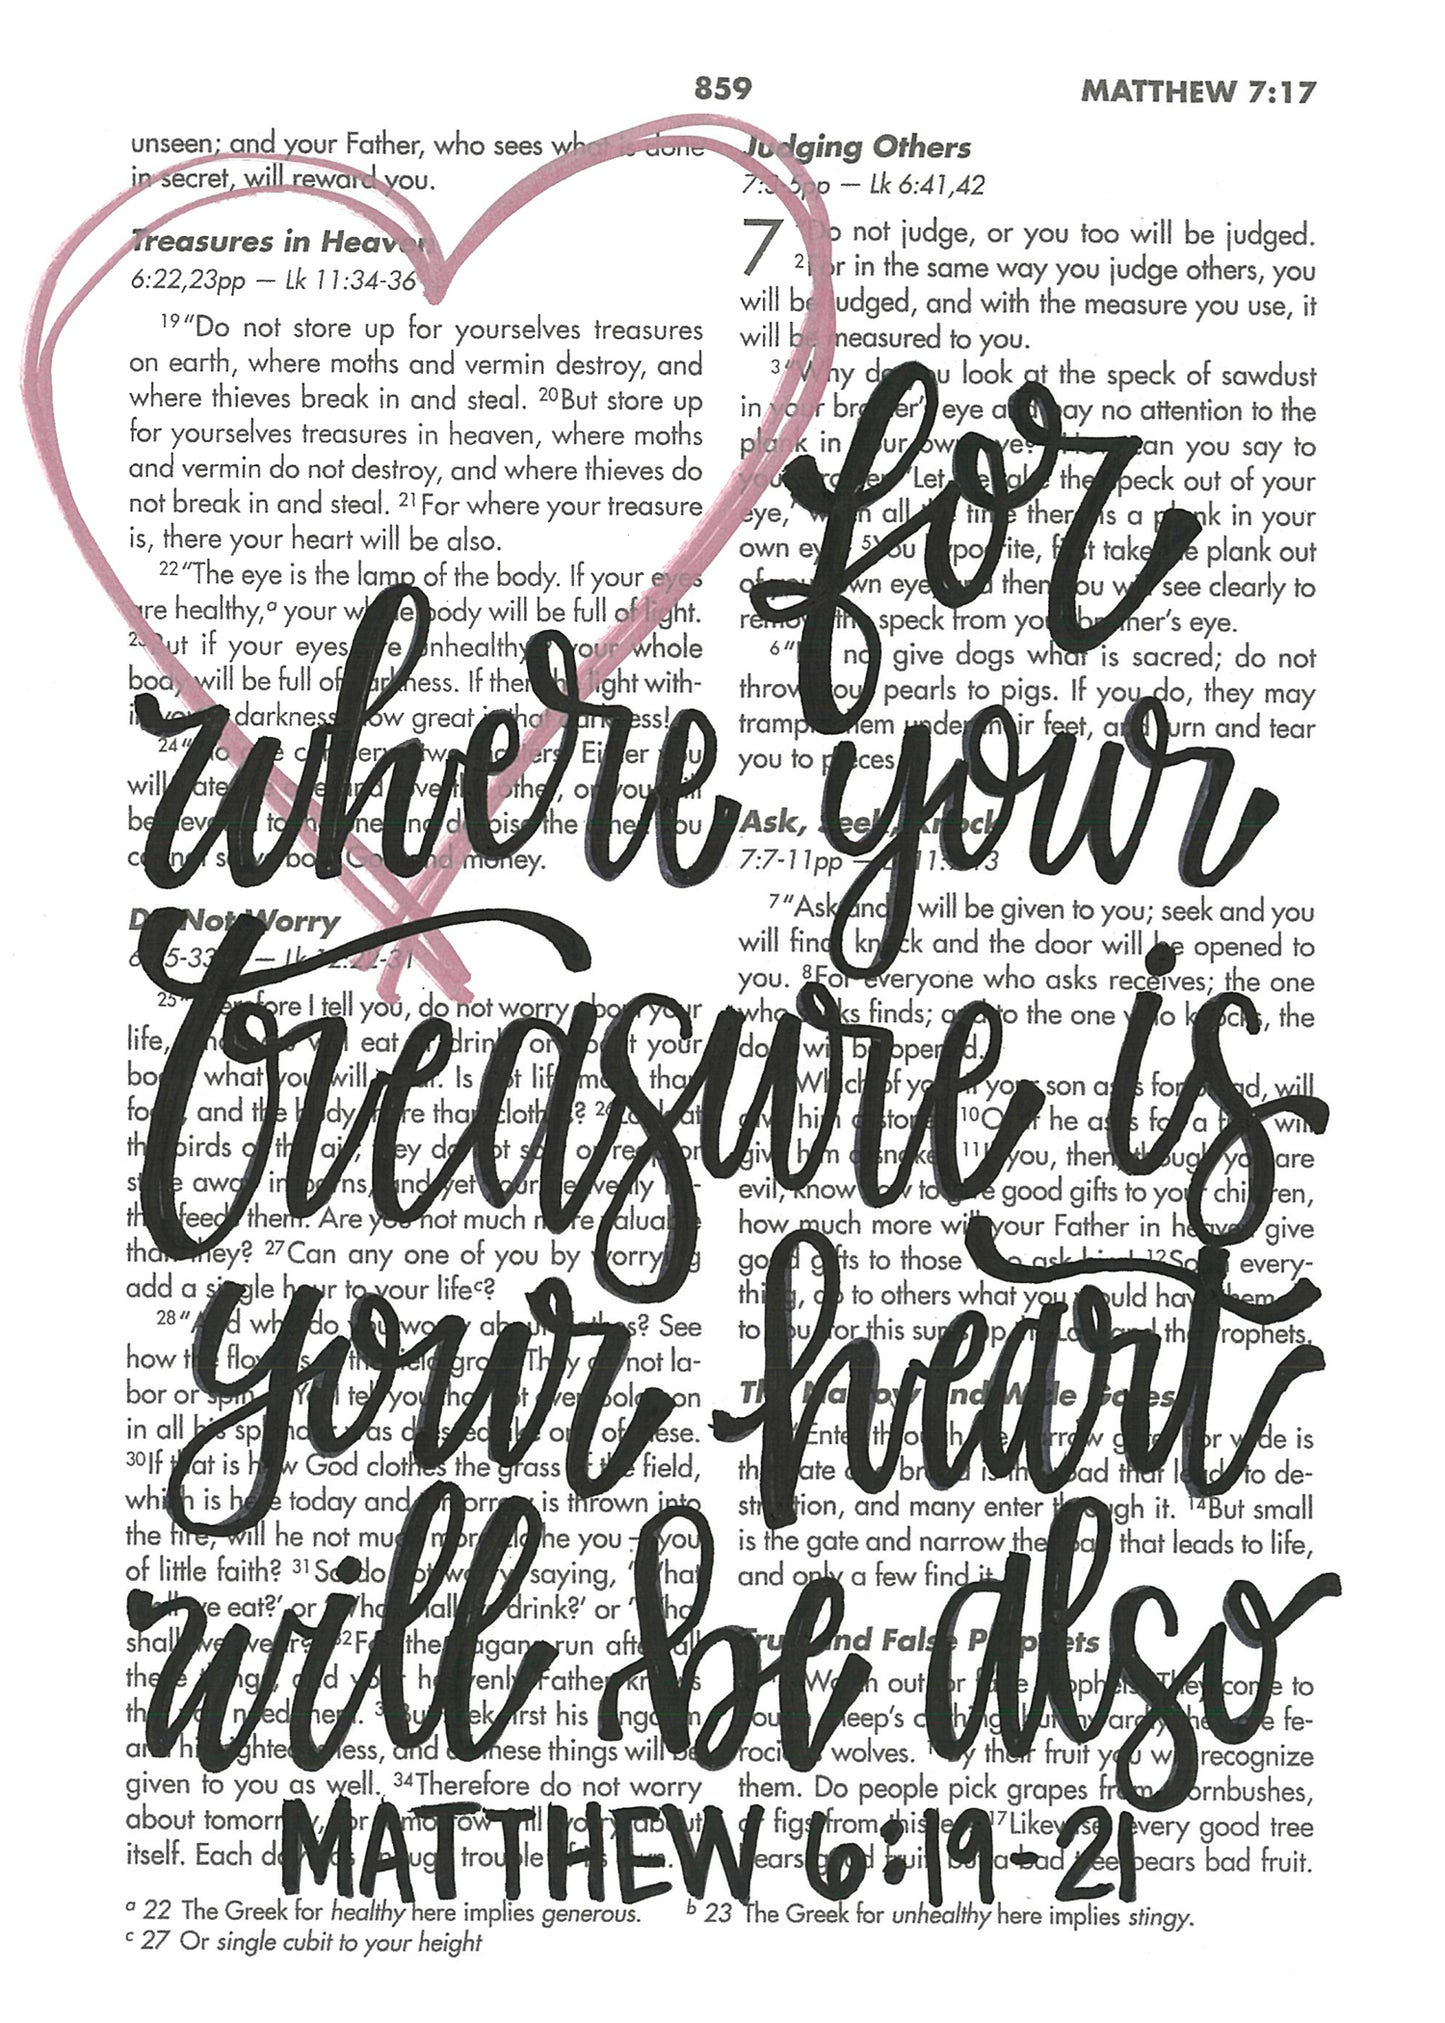 859
MATTHEW 7:17
unseen; and your Father, who sees what is done
in secret, will reward you.
Treasures in Heaven
6:22,23pp — Lk 11:34-36
19 "Do not store up for yourselves treasures
on earth, where moths and vermin destroy, and
where thieves break in and steal. 20 But store up
for yourselves treasures in heaven, where moths
and vermin do not destroy, and where thieves do
not break in and steal. 21 For where your treasure
is, there your heart will be also.
22 "The eye is the lamp of the body. If your eyes
are healthy,a your whole body will be full of light.
23 But if your eyes are unhealthy, your whole
body will be full of darkness. If then the light with-
darkness, how great is that darkness!
24
will hate the one and love the other, or you will
be to the one and despise the other. You
cannot serve both God and money.
Do Not Worry
— Lk 12:22-31
25 "Therefore I tell you, do not worry about your
life, eat or drink; or about your
body, what you will Is not life more than
food, and the body more than clothes? 26 Look at
the birds of the air; they do not sow or reap or
store away in barns, and yet your heavenly Fa-
ther feeds them. Are you not much more valuable
than they? 27 Can any one of you by worrying
add a single hour to your lifec?
28 "And why do you worry about clothes? See
how the flowers of the field grow. They do not la-
bor or spin. tell you that not even Solomon
in all his splendor was dressed like one of these.
30 If that is how God clothes the grass of the field,
which is here today and tomorrow is thrown into
the fire, will he not much more clothe you—you
of little faith? 31 So do not worry, saying, 'What
shall we eat?' or 'What shall we drink?' or 'What
shall we wear?' 32 For the pagans run after all
these things, and your heavenly Father knows
that you need them. But seek first his kingdom
and his righteousness, and all these things will be
given to you as well. 34 Therefore do not worry
about tomorrow, for tomorrow will worry about
itself. Each day has enough trouble of its own.
Judging Others
7:3-5pp — Lk 6:41,42
7 "Do not judge, or you too will be judged.
2 For in the same way you judge others, you
will be judged, and with the measure you use, it
will be measured to you.
3 "Why do you look at the speck of sawdust
in your brother's eye and pay no attention to the
plank in your own eye? How can you say to
your brother, 'Let me take the speck out of your
eye,' when all the time there is a plank in your
own eye? 5 You hypocrite, first take the plank out
of your own eye, and then you will see clearly to
remove the speck from your brother's eye.
6 "Do not give dogs what is sacred; do not
throw your pearls to pigs. If you do, they may
trample them under their feet, and turn and tear
you to pieces.
Ask, Seek, Knock
7:7-11pp —
7 "Ask and will be given to you; seek and you
will find; knock and the door will be opened to
you. 8 For everyone who asks receives; the one
who seeks finds; and to the one who knocks, the
door will be opened.
"Which of you, if your son asks for bread, will
give him a stone? 10 Or if he asks for a fish, will
give him a snake? 11 If you, then, though you are
evil, know how to give good gifts to your children,
how much more will your Father in heaven give
good gifts to those who ask him! 12 So in every-
thing, do to others what you would have them do
to you, for this sums up the Law and the Prophets.
The Narrow and Wide Gates
"Enter through the narrow gate. For wide is
the gate and broad is the road that leads to de-
struction, and many enter through it. 14 But small
is the gate and narrow the road that leads to life,
and only a few find it.
True and False Prophets
"Watch out for false prophets. They come to
you in sheep's clothing, but inwardly they are fe-
rocious wolves. By their fruit you will recognize
them. Do people pick grapes from thornbushes,
or figs from thistles? 17 Likewise, every good tree
bears good fruit, but a bad tree bears bad fruit.
a 22 The Greek for healthy here implies generous. b 23 The Greek for unhealthy here implies stingy.
c 27 Or single cubit to your height
for
where your
treasure is
your heart
will be also
MATTHEW 6:19-21